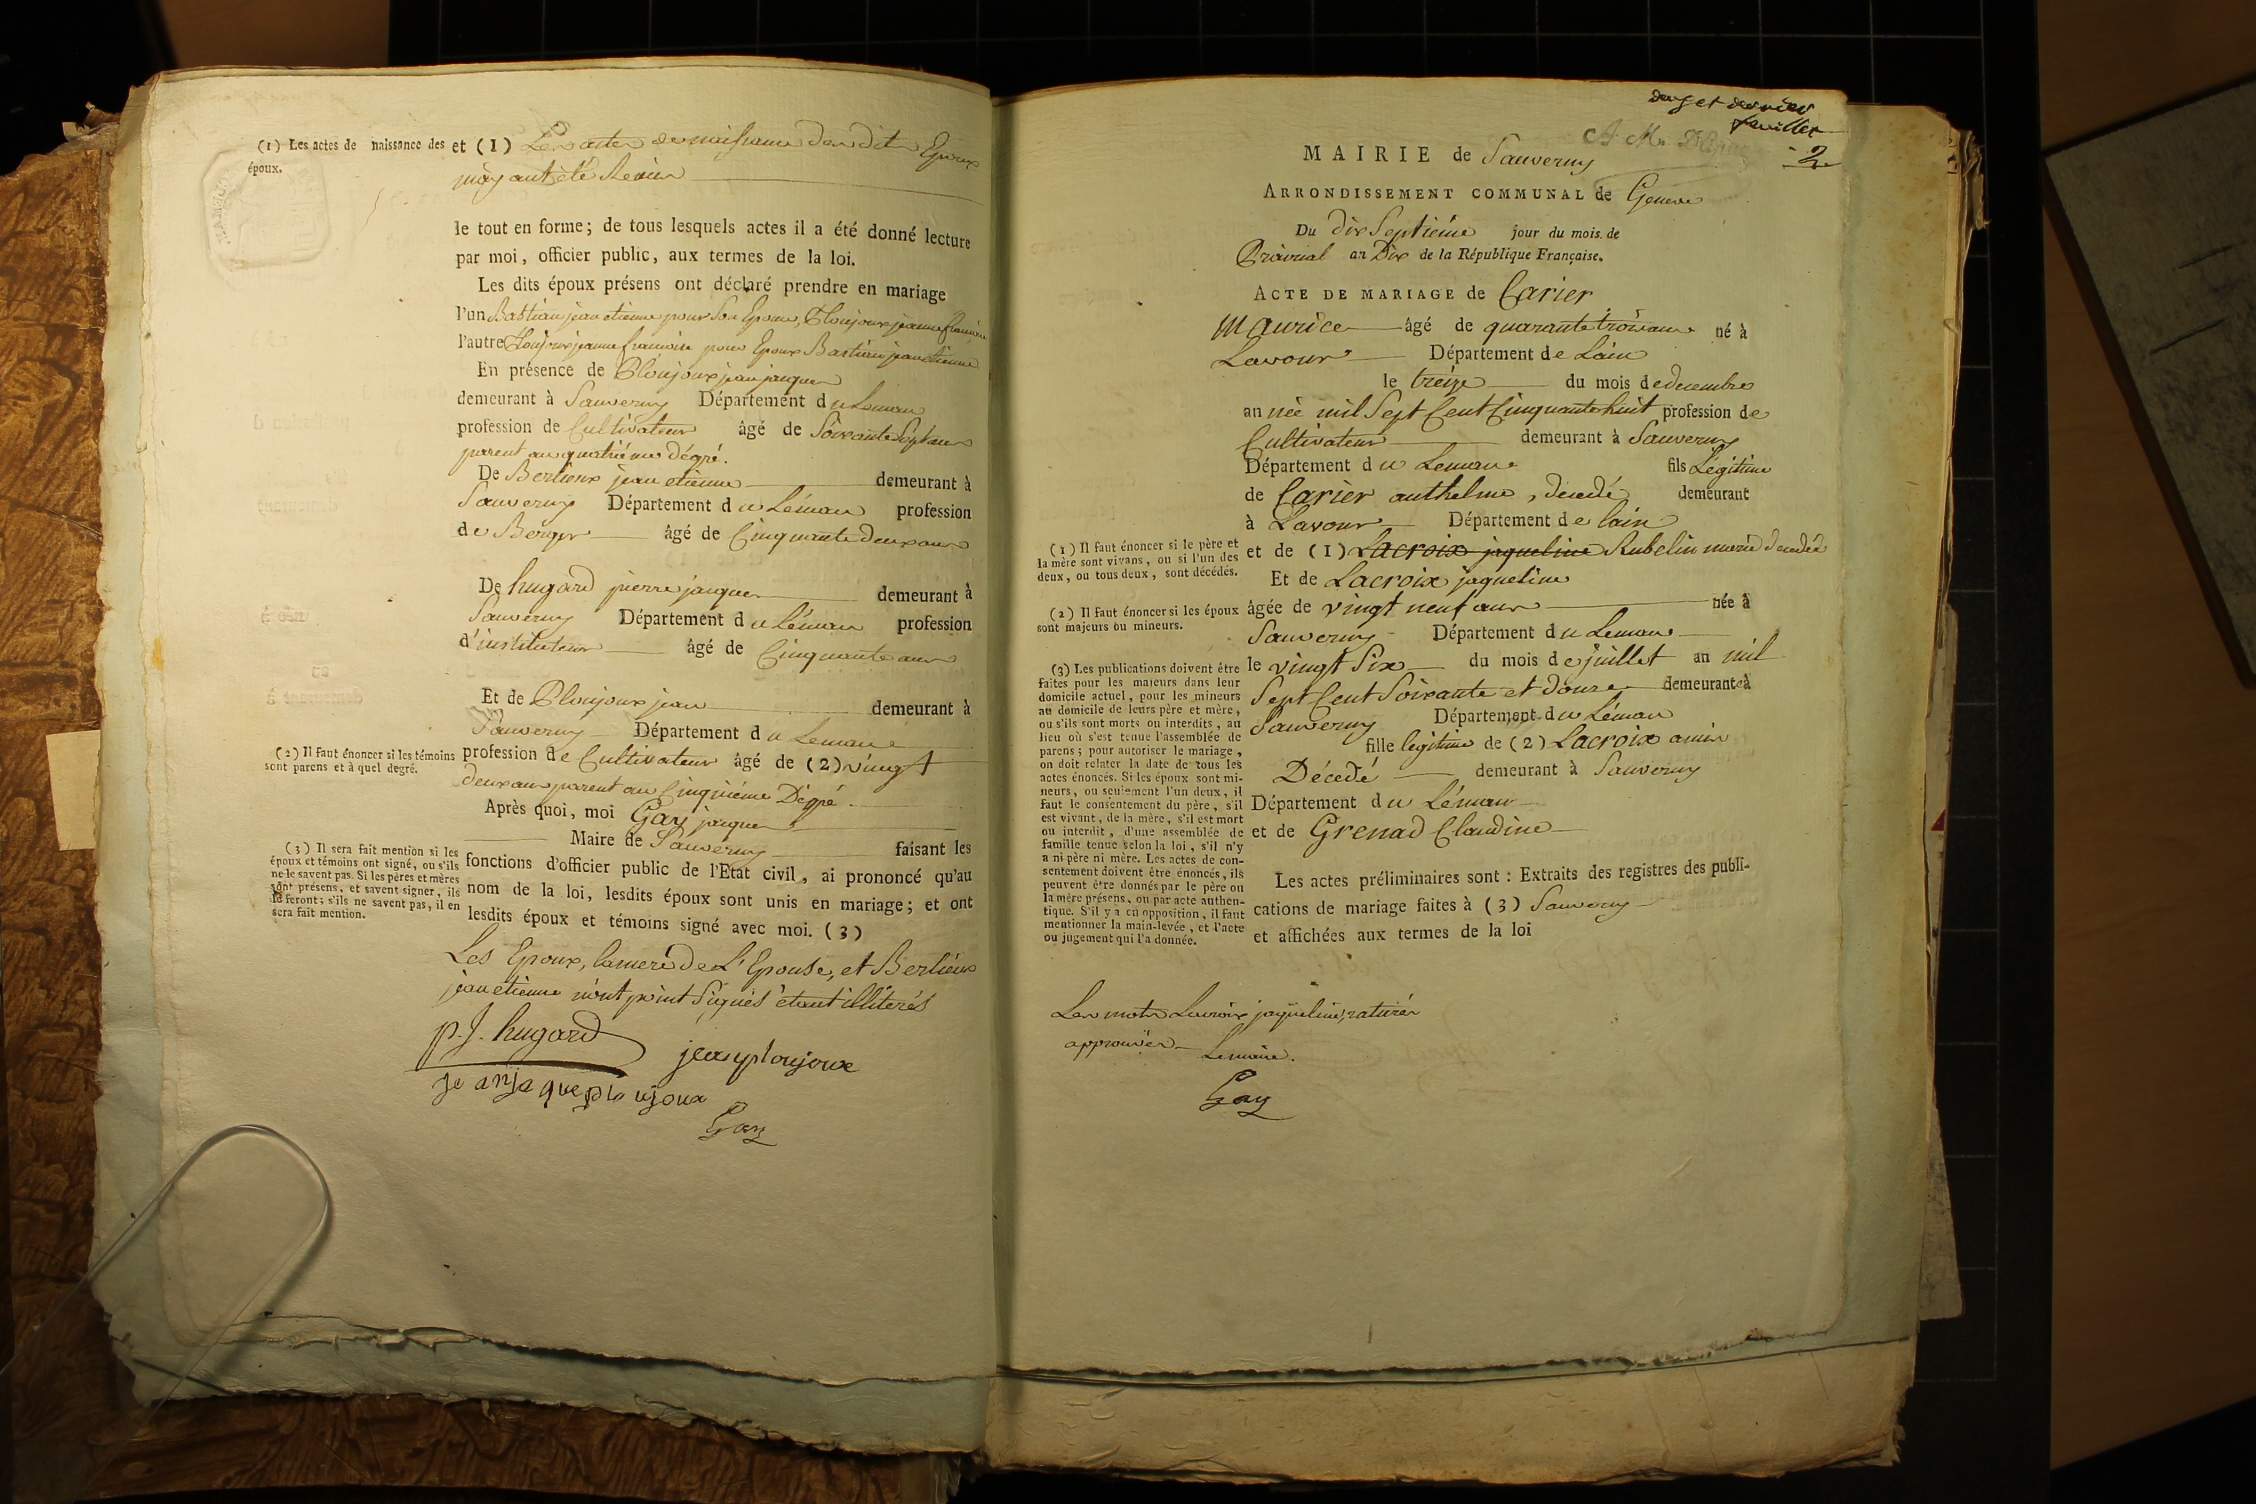 (1) Les actes de naissance des
époux.
et (1) Les actes de naissance des dits Epoux
m'ayant été Remis
le tout en forme; de tous lesquels actes il a été donné lecture
par moi, officier public, aux termes de la loi.
Les dits époux présens ont déclaré prendre en mariage
l'un Bastian jean etienne pour Son Epouse, Ploujoux jeanne francoise
l'autre Ploujoux jeanne francoise pour Epoux Bastian jean etienne
En présence de Ploujoux jean jacques
demeurant à Sauverny Département du Leman
profession de Cultivateur âgé de Soixante Sept ans
parent au quatriéme dégré.
De Bertieux jean etienne demeurant à
Sauverny Département du Léman profession
de Berger âgé de Cinquante deux ans
De hugard pierre jacques demeurant à
Sauverny Département du Léman profession
d'instituteur âgé de Cinquante ans
Et de Ploujoux jean demeurant à
Sauverny Département du Leman
(2) Il faut énoncer si les témoins
sont parens et à quel degré.
profession de Cultivateur âgé de (2) vingt
deux ans parent au Cinquiéme Dégré.
Après quoi, moi Gay jacques
Maire de Sauverny faisant les
(3) Il sera fait mention si les
époux et témoins ont signé, ou s'ils
ne le savent pas. Si les pères et mères
sont présens, et savent signer, ils
le feront; s'ils ne savent pas, il en
sera fait mention.
fonctions d'officier public de l'Etat civil, ai prononcé qu'au
nom de la loi, lesdits époux sont unis en mariage; et ont
lesdits époux et témoins signé avec moi. (3)
Les Epoux, la mere de L'Epouse, et Bertieux
jean etienne n'ont point Signés étant illiterés
p. J. hugard
jean ploujoux
jeanjaqueploujoux
Gay
deux et dernier
feuillet
2
MAIRIE de Sauverny
ARRONDISSEMENT COMMUNAL de Geneve
Du dix Septiéme jour du mois de
Prairial an Dix de la République Française.
ACTE DE MARIAGE de Carier
Maurice âgé de quarante trois ans né à
Lavour Département de Lain
le treize du mois de decembre
année mil Sept Cent Cinquante huit profession de
Cultivateur demeurant à Sauverny
Département du Leman fils Légitime
de Carier anthelme, décedé demeurant
à Lavour Département de lain
(1) Il faut énoncer si le père et
la mère sont vivans, ou si l'un des
deux, ou tous deux, sont décédés.
et de (1) Lacroix jaqueline Rubelin marie decedée
Et de Lacroix jaqueline
(2) Il faut énoncer si les époux
sont majeurs ou mineurs.
âgée de vingt neuf ans née à
Sauverny Département du Leman
le vingt Six du mois de juillet an mil
Sept Cent Soixante et douze demeurante à
Sauverny Département du Léman
fille legitime de (2) Lacroix amis
Décedé demeurant à Sauverny
Département du Léman
et de Grenad Claudine
(3) Les publications doivent être
faites pour les majeurs dans leur
domicile actuel, pour les mineurs
au domicile de leurs père et mère,
ou s'ils sont morts ou interdits, au
lieu où s'est tenue l'assemblée de
parens; pour autoriser le mariage,
on doit relater la date de tous les
actes énoncés. Si les époux sont mi-
neurs, ou seulement l'un deux, il
faut le consentement du père, s'il
est vivant, de la mère, s'il est mort
ou interdit, d'une assemblée de
famille tenue selon la loi, s'il n'y
a ni père ni mère. Les actes de con-
sentement doivent être énoncés, ils
peuvent être donnés par le père ou
la mère présens, ou par acte authen-
tique. S'il y a eu opposition, il faut
mentionner la main-levée, et l'acte
ou jugement qui l'a donnée.
Les actes préliminaires sont : Extraits des registres des publi-
cations de mariage faites à (3) Sauverny
et affichées aux termes de la loi
Les mots Lacroix jaqueline, raturés
approuvés Lemaire.
Gay